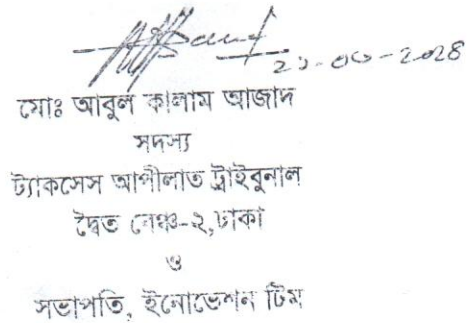 মোঃ আবুল কালাম আজাদ
সদস্য
ট্যাকসেস আপীলাত ট্রাইবুনাল
দ্বৈত বেঞ্চ-২,ঢাকা
ও
সভাপতি, ইনোভেশন টিম